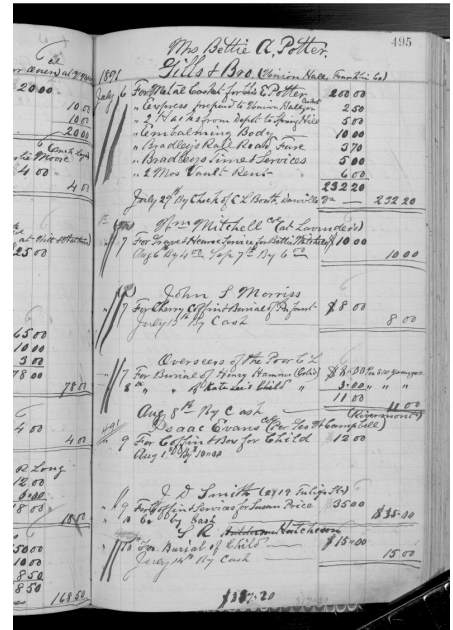 495
Mrs Bettie A. Potter.
Gills & Bro. (Union Hall, Franklin Co)
1891
July 6 For Metal Casket for Jas E. Potter 200 00
" Express prepaid to Union Hall 2 50
" 2 Hacks from Depot to Spring Hill 5 00
" Embalming Body 10 00
" Bradleys Rail Road Fare 3 70
" Bradleys Time & Services 5 00
" 2 Mos Vault Rent 6 00
232 20
July 29th By Check of C L Booth, Danville Va — 232 20
Wm Mitchell Col (at Lavinder's)
" 7 For Grave & Hearse Service for Bettie Mitchell $10 00
Aug 6 By 4 00 Sep 7th By 6 00 10 00
John S Morriss
" 7 For Cherry Coffin & Burial of Infant $8 00
July 13th By Cash 8 00
Overseers of the Poor C L
" 7 For Burial of Henry Hamner (Cold) $8.00
8 " " of Kate Lee's Child " 3.00 " " "
11 00
Aug 8th By Cash — 11 00
(Rivermont)
Isaac Evans Col (Per Campbell)
" 9 For Coffin & Box for Child 12 00
Aug 1st By 10.00
J. D. Smith (2419 Tulip St)
" 9 For Coffin & Services for Susan Price $35 00
by Cash $35.00
S R Hutcheson
" 10 For Burial of Child $15.00
July 14th By Cash — 15 00
$327.20
20 00
10 00
10 00
20 00
4 00
4 00
25 00
65 00
10 00
3 00
78 00
78 00
4 00
4 00
Long
12 00
6.00
18 00
18 00
50 00
10 00
8 50
8 50
168 50